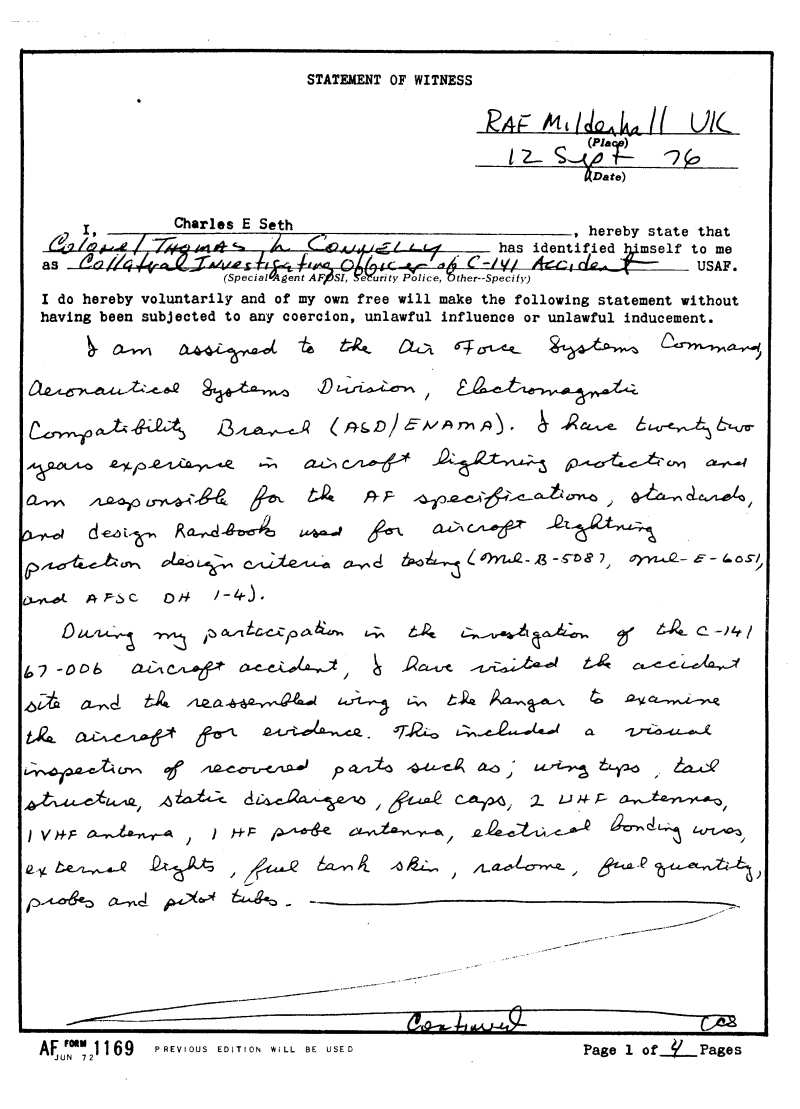 STATEMENT OF WITNESS
RAF Mildenhall UK
(Place)
12 Sept 76
(Date)
I, Charles E Seth, hereby state that
Colonel THOMAS L. CONNELLY has identified himself to me
as Collatral Investigating Officer of C-141 Accident USAF.
(Special Agent AFOSI, Security Police, Other--Specify)
I do hereby voluntarily and of my own free will make the following statement without
having been subjected to any coercion, unlawful influence or unlawful inducement.
I am assigned to the Air Force Systems Command,
Aeronautical Systems Division, Electromagnetic
Compatibility Branch (ASD/ENAMA). I have twenty two
years experience in aircraft lightning protection and
am responsible for the AF specifications, standards,
and design handbooks used for aircraft lightning
protection design criteria and testing (Mil-B-5087, Mil-E-6051,
and AFSC DH 1-4).
During my participation in the investigation of the C-141
67-006 aircraft accident, I have visited the accident
site and the reassembled wing in the hangar to examine
the aircraft for evidence. This included a visual
inspection of recovered parts such as; wing tips, tail
structure, static dischargers, fuel caps, 2 UHF antennas,
1 VHF antenna, 1 HF probe antenna, electrical bonding wires,
external lights, fuel tank skin, radome, fuel quantity,
probes and pitot tubes.
Continued CES
AF FORM 1169 PREVIOUS EDITION WILL BE USED Page 1 of 4 Pages
JUN 72